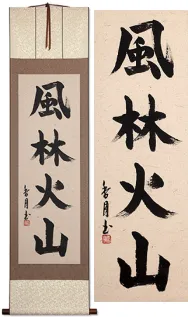 風林火山
香月書
風林火山
香月書